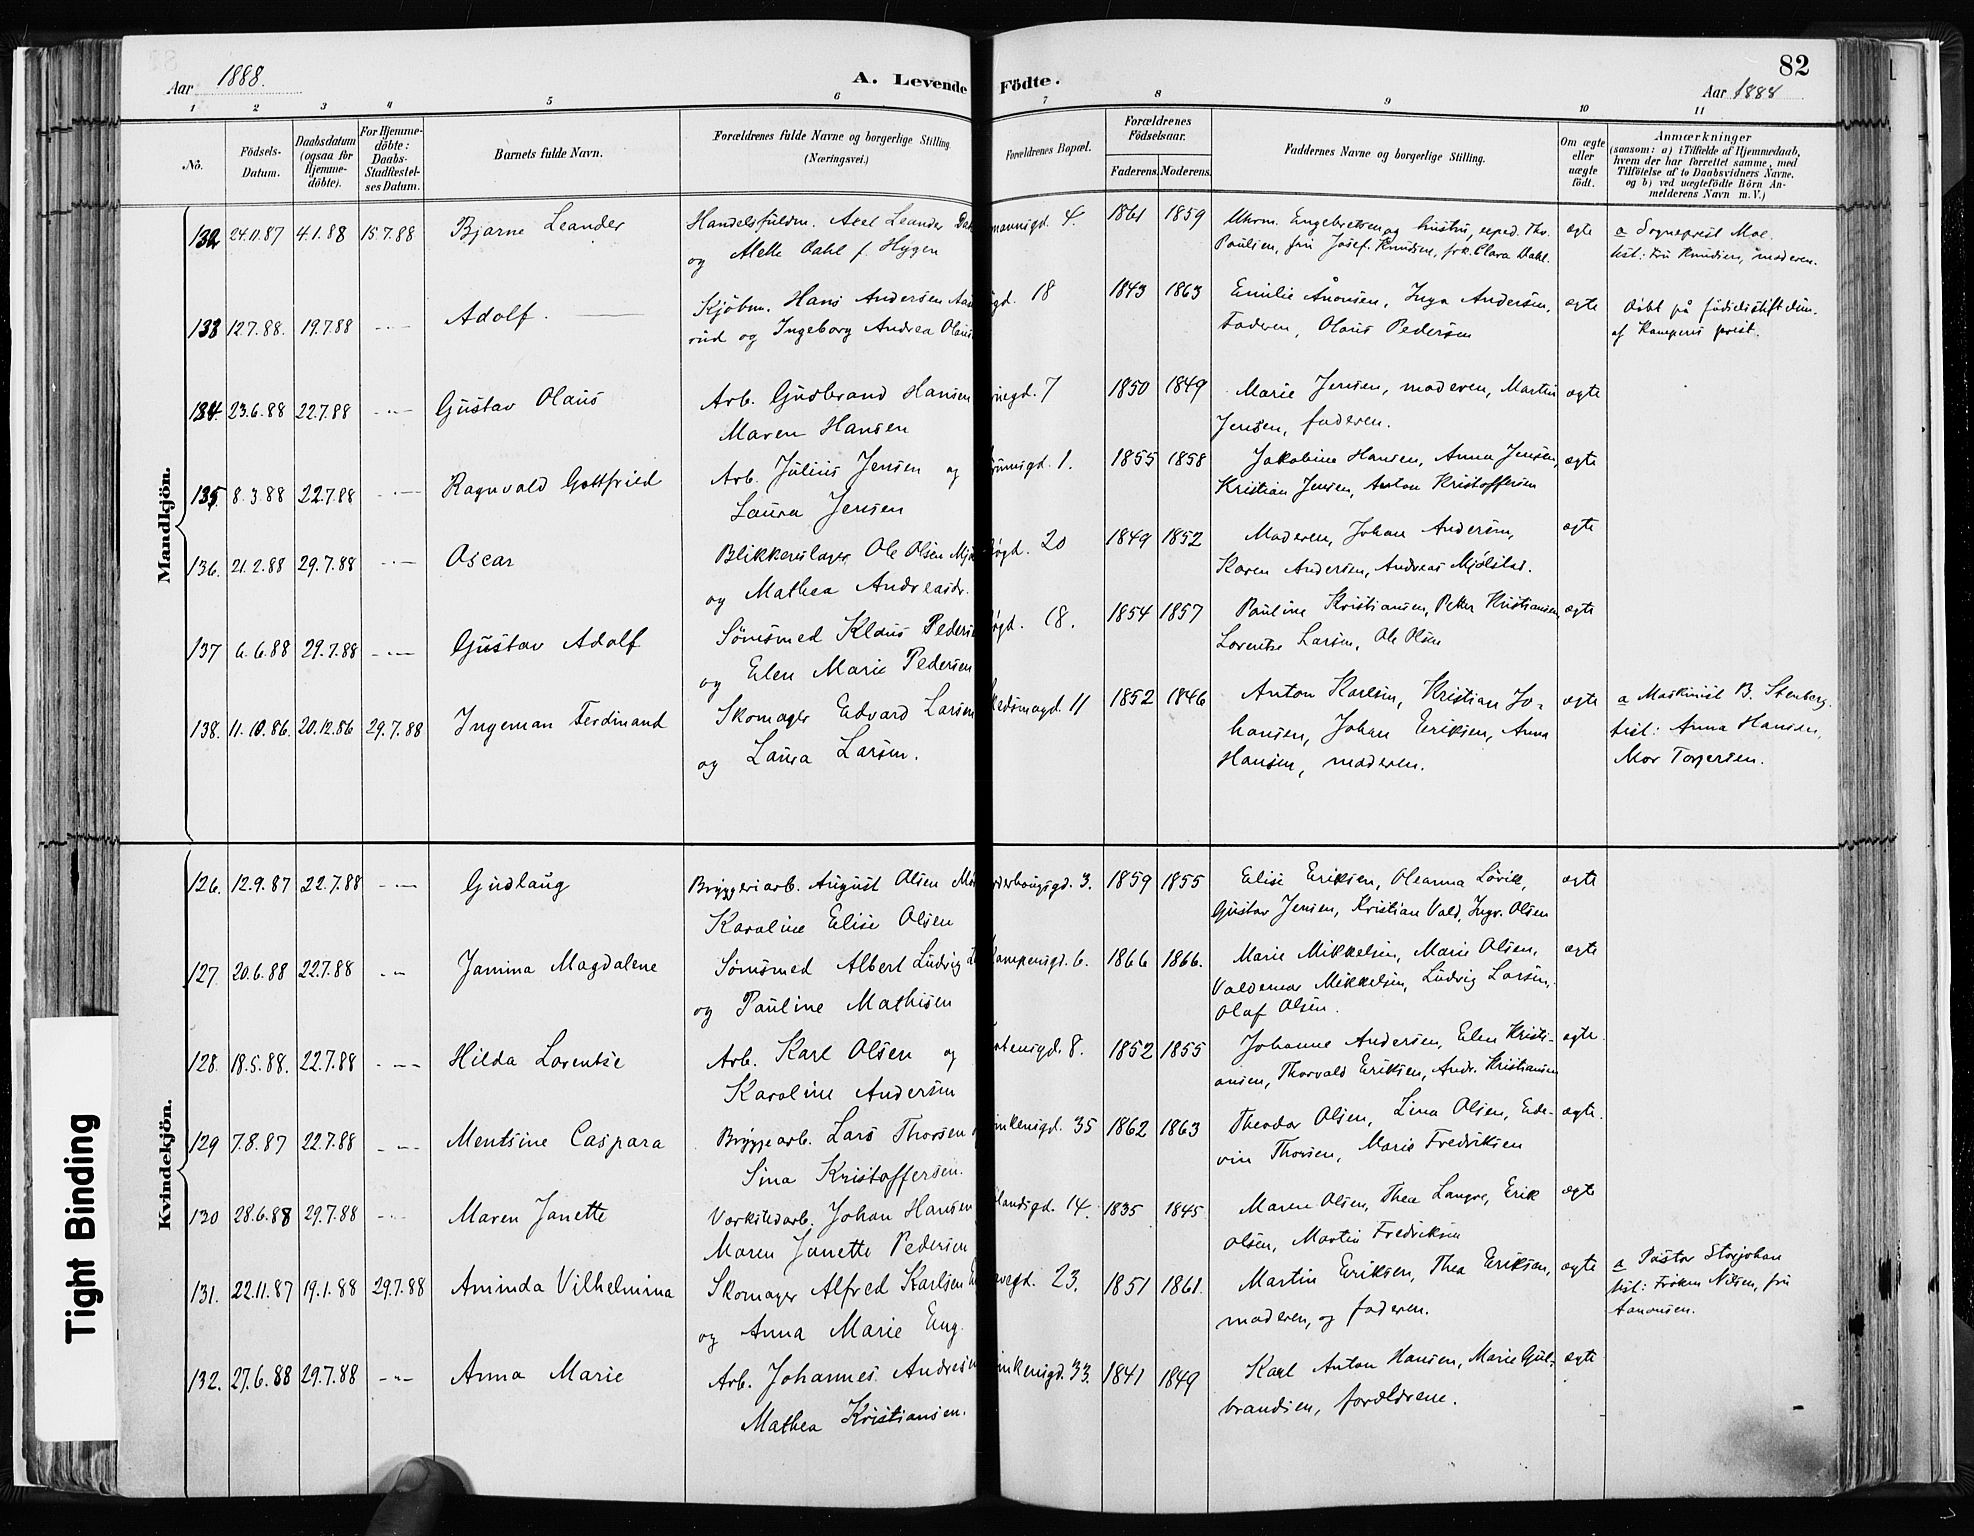 82
Aar 1888.
A. Levende Födte.
Aar 1888
1 2 3 4 5 6 7 8 9 10 11
No.
Födsels-Datum.
Daabsdatum (ogsaa for Hjemme-döbte).
For Hjemme-döbte: Daabs-Stadfæstel-ses Datum.
Barnets fulde Navn.
Forældrenes fulde Navne og borgerlige Stilling (Næringsvei.)
Forældrenes Bopæl.
Forældrenes Födselsaar.
Faderens. Moderens.
Faddernes Navne og borgerlige Stilling.
Om ægte eller uægte födt.
Anmærkninger
(saasom: a) i Tilfælde af Hjemmedaab, hvem der har forrettet samme, med Tilföielse af to Daabsvidners Navne. og b) ved uægtefödte Börn An-melderens Navn m. V.)
Mandkjön.
132 24.11.87 4.1.88 15.7.88 Bjarne Leander Handelsfuldm. Axel Leander 4. 1861 1859 Engebretsen og hustru, reped. Th. ægte a Sogneprest Moe.
og Mette Dahl f. Hygen Paulsen, fru Josef. Knudsen, frk. Clara Dahl. test: Fru Knudsen, moderen.
133 12.7.88. 19.7.88 Adolf. Kjöbm. Hans Andersen gd. 18 1843 1863 Emilie Ånonsen, Inga Andersen, ægte Döbt på födselsstiftelsen
rud og Ingeborg Andrea Faderen, Olaus Pedersen af Kampens prest.
134 23.6.88 22.7.88 Gustav Olaus Arb. Gudbrand Hansen gd. 7 1850 1849 Marie Jensen, moderen, Martin ægte
Maren Hansen Jensen, faderen.
135 8.3.88 22.7.88 Ragnvald Gottfried Arb. Julius Jensen og gd. 1. 1855 1858 Jakobine Hansen, Anna Jensen, ægte
Laura Jensen Kristian Jensen, Anton Kristoffersen
136. 21.2.88 29.7.88 Oscar Blikkenslager Ole Olsen gd. 20 1849 1852 Moderen, Johan Andersen, ægte
og Mathea Andreasdr. Karen Andersen, Andreas Mjölstad.
137 6.6.88 29.7.88 Gustav Adolf Sömsmed Klaus gd. 18. 1854 1857 Pauline Kristiansen, Peter Kristiansen, ægte
og Elen Marie Pedersen Lorentse Larsen, Ole Olsen
138. 11.10.86. 20.12.86 29.7.88 Ingeman Ferdinand Skomager Edvard Larsen gd. 11 1852 1846 Anton Karlsen, Kristian Jo- ægte a Maskinist B. Stenberg.
og Laura Larsen. hansen, Johan Eriksen, Anna test: Anna Hansen,
Hansen, moderen. Mor Torgersen.
Kvindekjön.
126. 12.9.87 22.7.88 Gudlaug Bryggeriarb. August Olsen gd. 3. 1859 1855 Elise Eriksen, Oleanna Lövik, ægte
Karoline Elise Olsen Gustav Jensen, Kristian Vald. Ingv. Olsen
127. 20.6.88 22.7.88 Janina Magdalene Sömsmed Albert Ludvig gd. 6. 1866 1866. Marie Mikkelsen, Marie Olsen, ægte
og Pauline Mathisen Valdemar Mikkelsen, Ludvig Larsen,
Olaf Olsen.
128. 18.5.88. 22.7.88 Hilda Lorentse Arb. Karl Olsen og gd. 8. 1852 1855 Johanne Andersen, Elen Kristi- ægte
Karoline Andersen ansen, Thorvald Eriksen, Andr. Kristiansen
129 7.8.87 22.7.88 Mentsine Caspara Bryggearb. Lars Thorsen gd. 35 1862 1863 Theodor Olsen, Lina Olsen, Ede- ægte.
Sina Kristoffersen. vin Thorsen, Marie Fredriksen
130 28.6.88 29.7.88 Maren Janette Værkstedarb. Johan Hansen gd. 14. 1835 1845. Maren Olsen, Thea Langve, Erik ægte
Maren Janette Pedersen Olsen, Martin Fredriksen
131. 22.11.87 19.1.88 29.7.88 Aminda Vilhelmina Skomager Alfred Karlsen gd. 23. 1851 1861. Martin Eriksen, Thea Eriksen, ægte a Pastor Storjohan
og Anna Marie Eng. moderen, og faderen. test: Fröken Nilsen, fru
Aanonsen.
132. 27.6.88 29.7.88 Anna Marie Arb. Johannes Andresen gd. 33. 1841 1849 Karl Anton Hansen, Marie Gul- ægte
Mathea Kristiansen. brandsen, forældrene.
Tight Binding